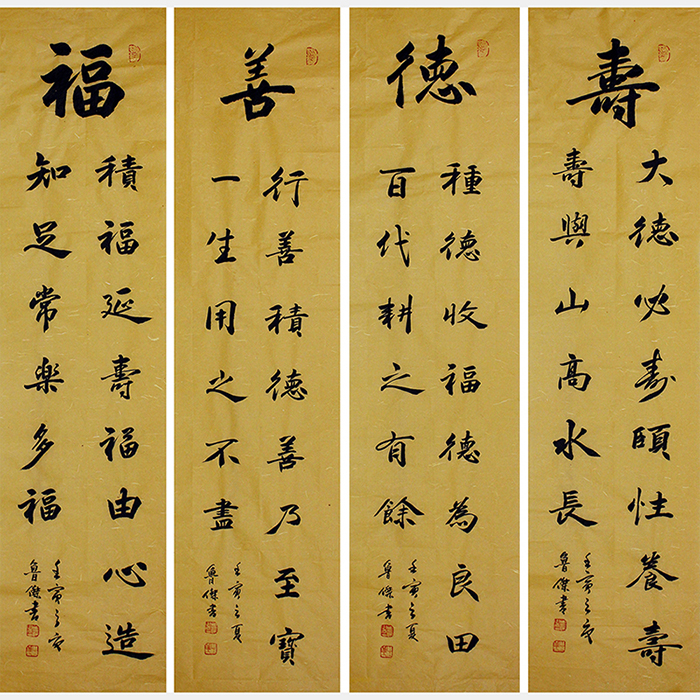 壽
大德必寿頤性養壽
壽與山高水長
壬寅之夏
魯傑書
德
種德收福德為良田
百代耕之有餘
壬寅之夏
魯傑書
善
行善積德善乃至寶
一生用之不盡
壬寅之夏
魯傑書
福
積福延壽福由心造
知足常楽多福
壬寅之夏
魯傑書